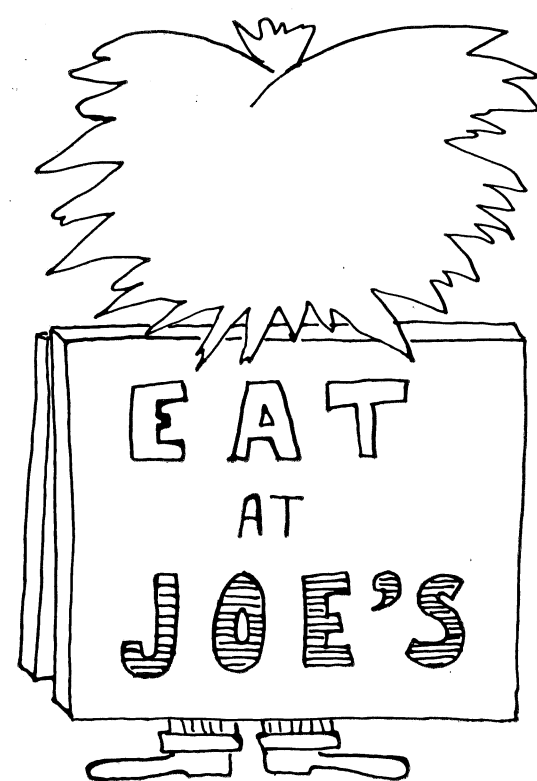 EAT
AT
JOE'S